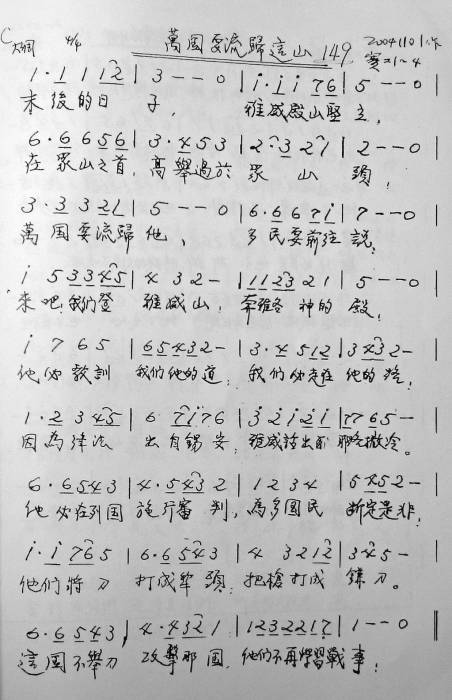 C大調 4/4 萬國要流歸這山 149 20041101作
賽2:1~4
1·1 1 12 | 3 - - 0 | i·i i 76 | 5 - - 0 |
末後的日 子, 雅威殿山堅立,
6·6 6 56 | 3·4 5 3 | 2·3 21 | 2 - - 0 |
在眾山之首,高舉過於 眾 山 頭,
3·3 3 21 | 5 - - 0 | 6·6 6 7i | 7 - - 0 |
萬國要流歸他, 多民要前往說,
i 5 3 3 4 5 | 4 3 2 - | 1 1 2 3 2 1 | 5 - - 0 |
來吧!我們登 雅威山, 奔雅各 神的 殿,
i 7 6 5 | 6 5 4 3 2 - | 3·4 5 12 | 3 4 3 2 - |
他必教訓 我們他的道, 我們必走在 他的路,
1·2 3 45 | 6 7i 7 6 | 3 2 i 2 i | 7 7 6 5 - |
因為律法 出自錫安, 雅威話出 耶路撒冷。
6·6 5 4 3 | 4·5 4 3 2 | 1 2 3 4 | 5 4 5 2 - |
他必在列國 施行審 判,為多國民 斷定是非,
i·i 7 6 5 | 6·6 5 4 3 | 4 3 2 12 | 3 4 5 - |
他們將刀 打成犁頭, 把槍打成 鐮刀。
6·6 5 4 3 | 4·4 3 2 1 | 1 2 3 2 2 1 7 | 1 - - 0 ‖
這國不舉刀 攻擊那國, 他們不再學習戰 事!